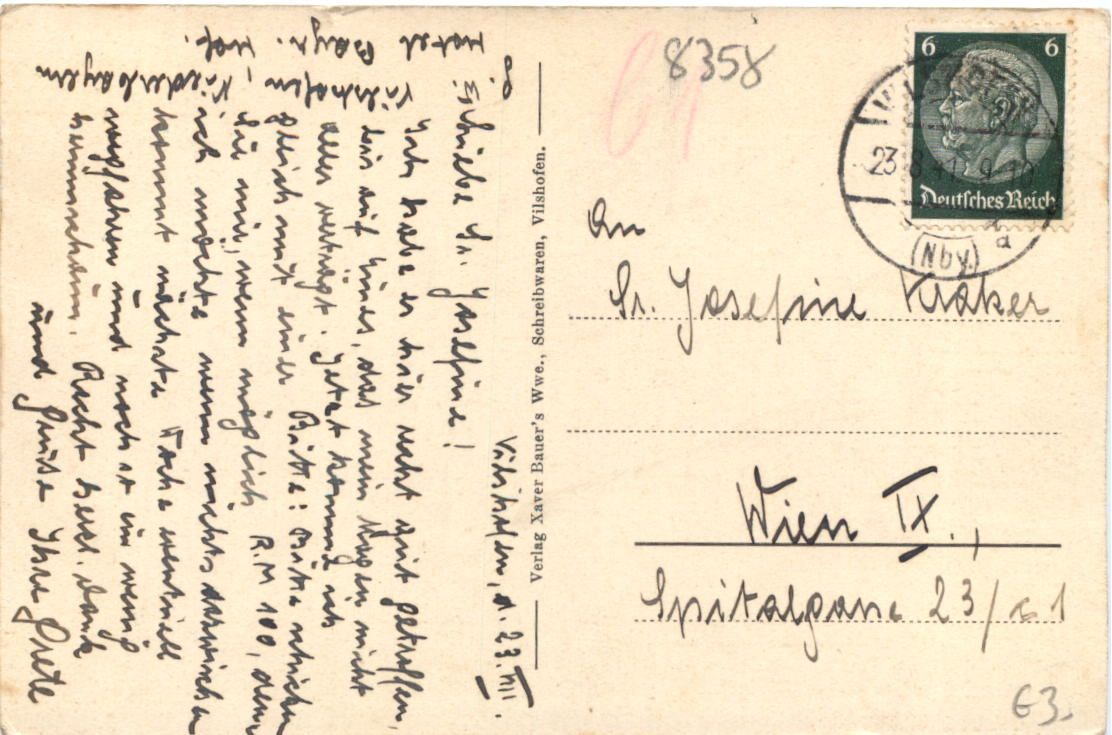 Vilshofen, d. 23. VIII.
Liebe Sr. Josefine!
Ich habe es hier recht gut getroffen,
bis auf eines, das mein Magen nicht
alles verträgt. Jetzt komme ich
gleich mit einer Bitte: Bitte schicken
Sie mir, wenn möglich R.M 100, denn
ich möchte wenn nichts dazwischen
kommt nächste Woche eventuell
wegfahren und noch so ein wenig
herumschaun. Recht herzl. Dank
und Grüße Ihre Grete
Vilshofen, Niederbayern
Hotel Bayr. Hof.
Verlag Xaver Bauer's Wwe., Schreibwaren, Vilshofen.
8358
6 6
Deutsches Reich
23.8.41. 9-10
a
(Nby.)
An
Sr. Josefine Kraker
Wien IX.,
Spitalgasse 23/
63.